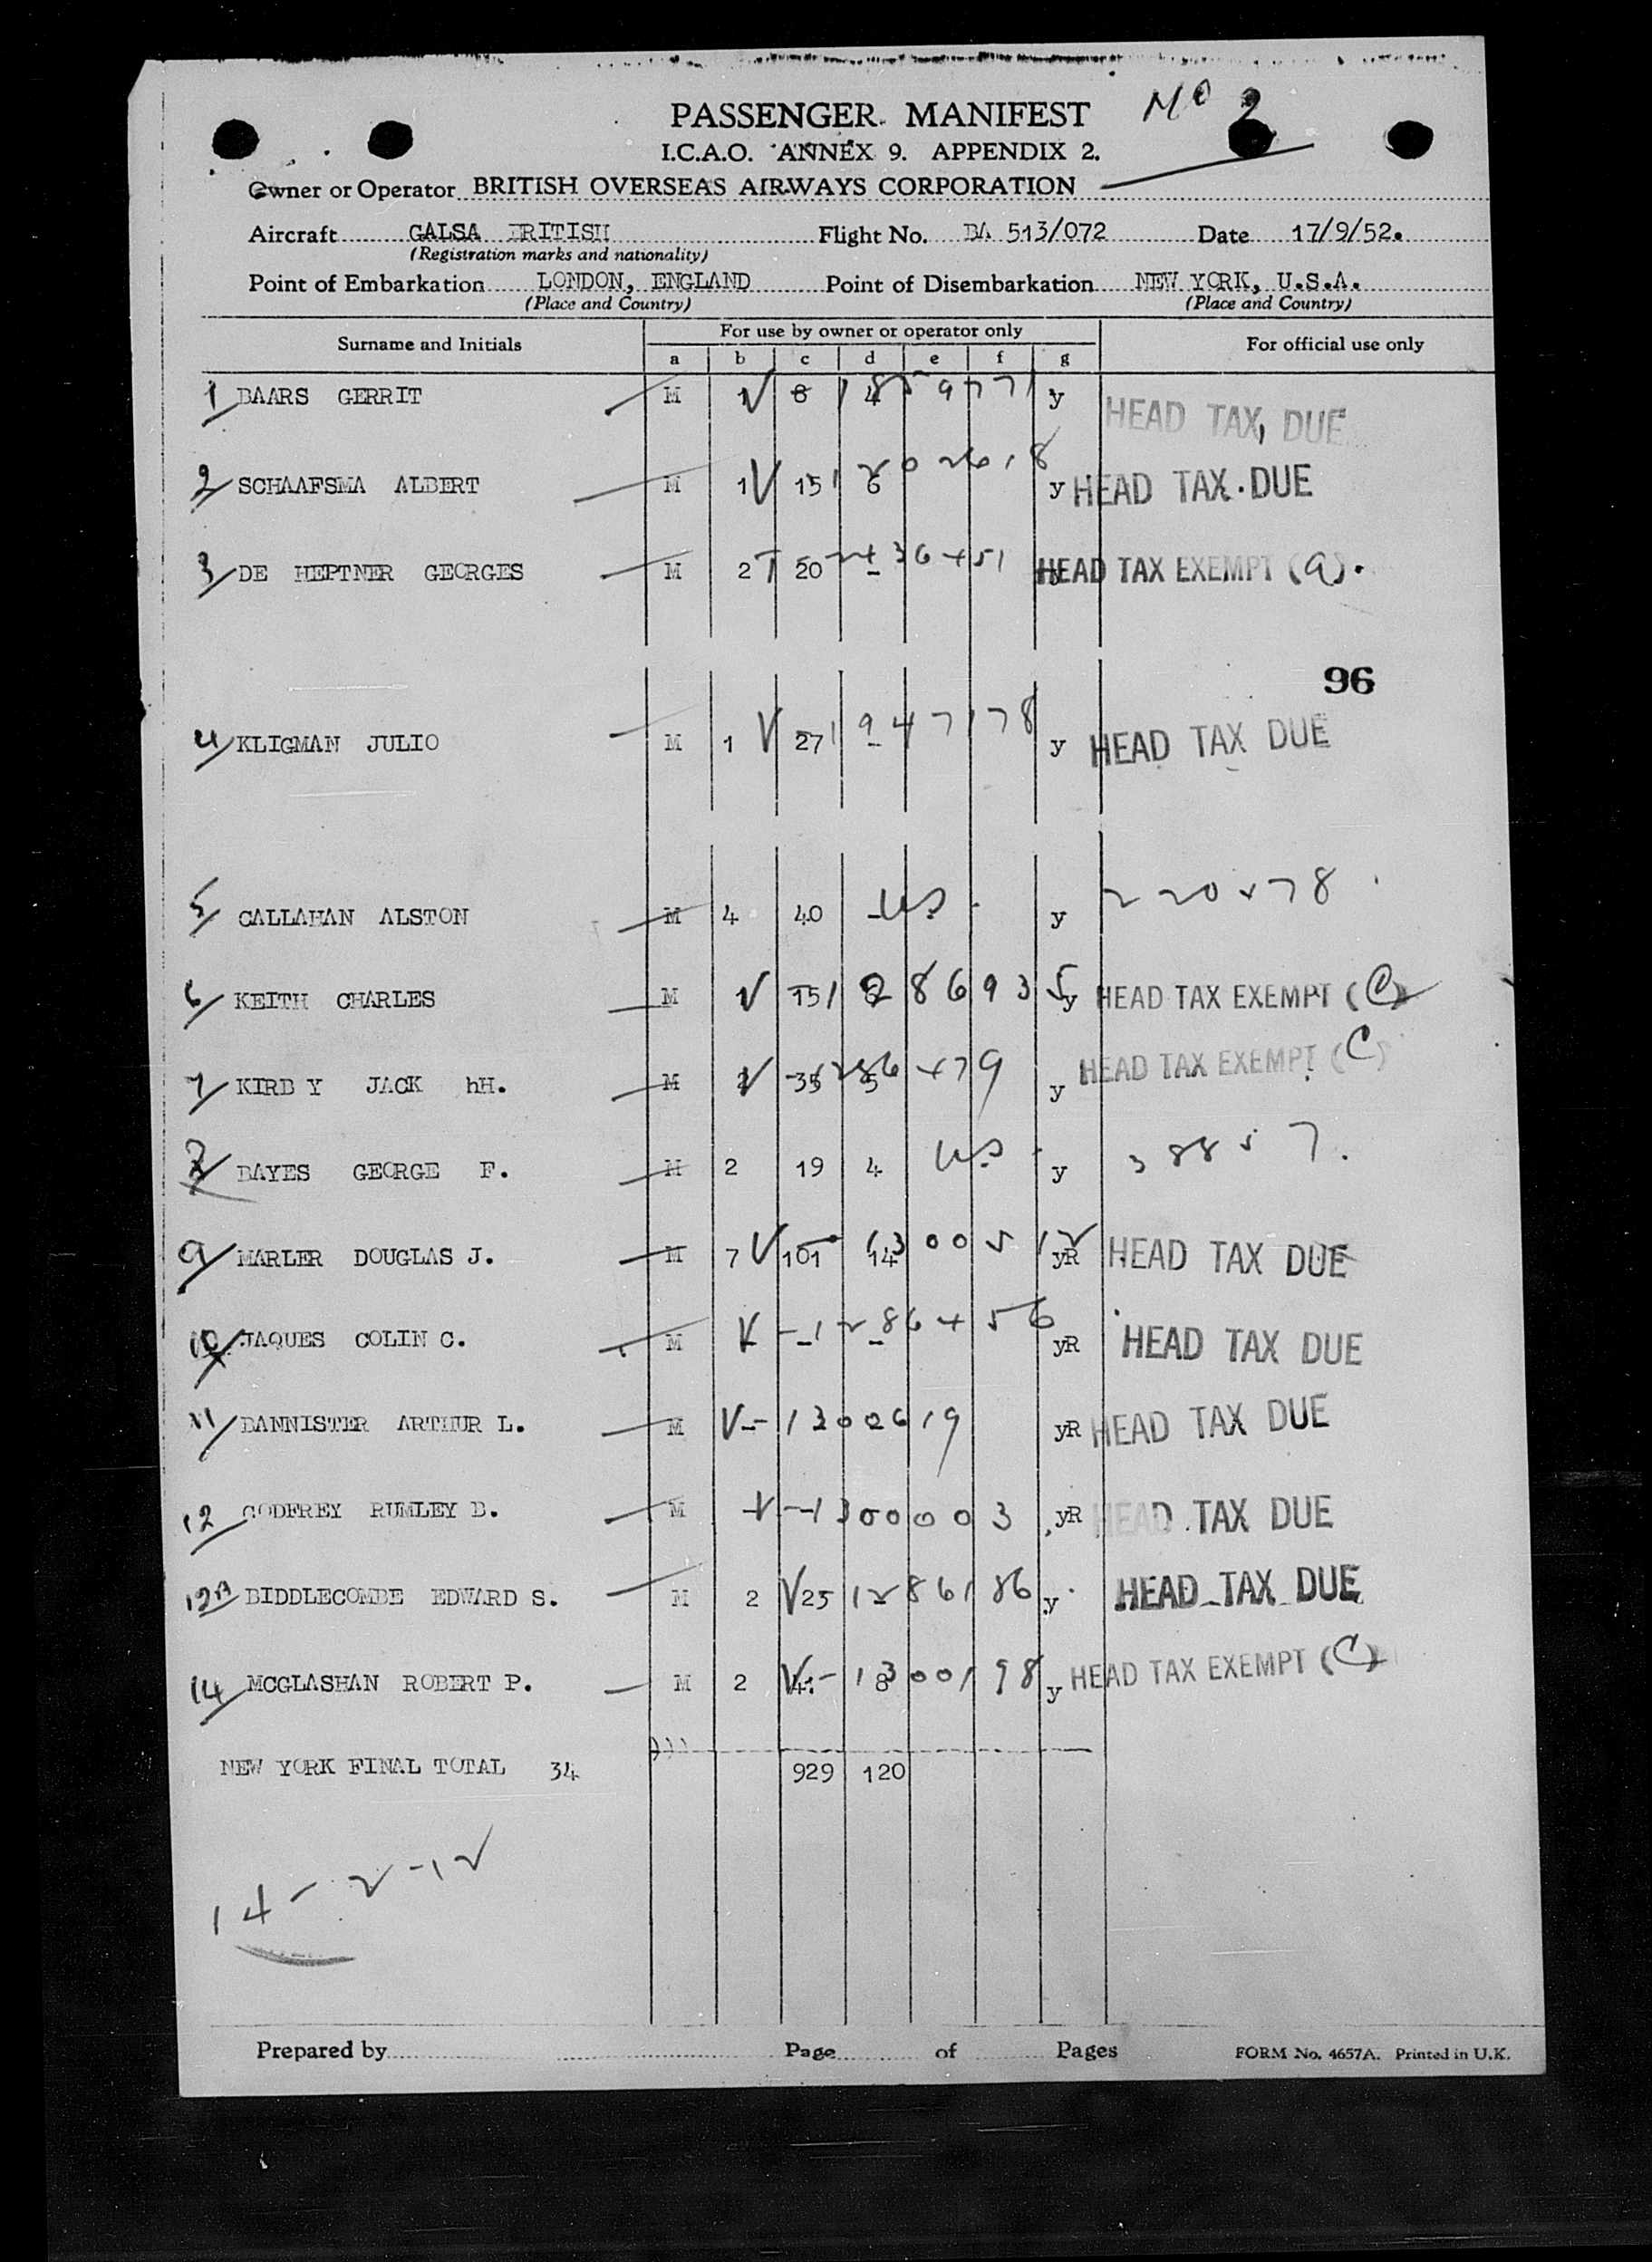 No 2
PASSENGER MANIFEST
I.C.A.O. ANNEX 9. APPENDIX 2.
Owner or Operator BRITISH OVERSEAS AIRWAYS CORPORATION
Aircraft GALSA BRITISH Flight No. BA 513/072 Date 17/9/52.
(Registration marks and nationality)
Point of Embarkation LONDON, ENGLAND Point of Disembarkation NEW YORK, U.S.A.
(Place and Country) (Place and Country)
Surname and Initials For use by owner or operator only For official use only
a b c d e f g
1/ BAARS GERRIT M 1 V 8 4 1859771 y HEAD TAX DUE
2/ SCHAAFSMA ALBERT M 1 V 15 6 y HEAD TAX DUE
3/ DE HEPTNER GEORGES M 2 T 20 - HEAD TAX EXEMPT (a).
96
4/ KLIGMAN JULIO M 1 V 27 - 1947178 y HEAD TAX DUE
5/ CALLAHAN ALSTON M 4 40 - US y 220578
6/ KEITH CHARLES M V 15 1286935 y HEAD TAX EXEMPT (C)
7/ KIRBY JACK hH. M V 35 5 1286479 y HEAD TAX EXEMPT (C)
BAYES GEORGE F. M 2 19 4 US y 38857.
9/ MARLER DOUGLAS J. M 7 V 101 14 1300512 yR HEAD TAX DUE
10/ JAQUES COLIN C. M V - - 1286456 yR HEAD TAX DUE
11/ BANNISTER ARTHUR L. M V - 1300619 yR HEAD TAX DUE
12/ GODFREY RUMLEY B. M - V - 1300003 yR HEAD TAX DUE
12B BIDDLECOMBE EDWARD S. M 2 V 25 - 1286186 y HEAD TAX DUE
14/ MCGLASHAN ROBERT P. M 2 V 41 8 1300198 y HEAD TAX EXEMPT (C)
NEW YORK FINAL TOTAL 34 929 120
14 - 2 - 12
Prepared by Page of Pages FORM No. 4657A. Printed in U.K.